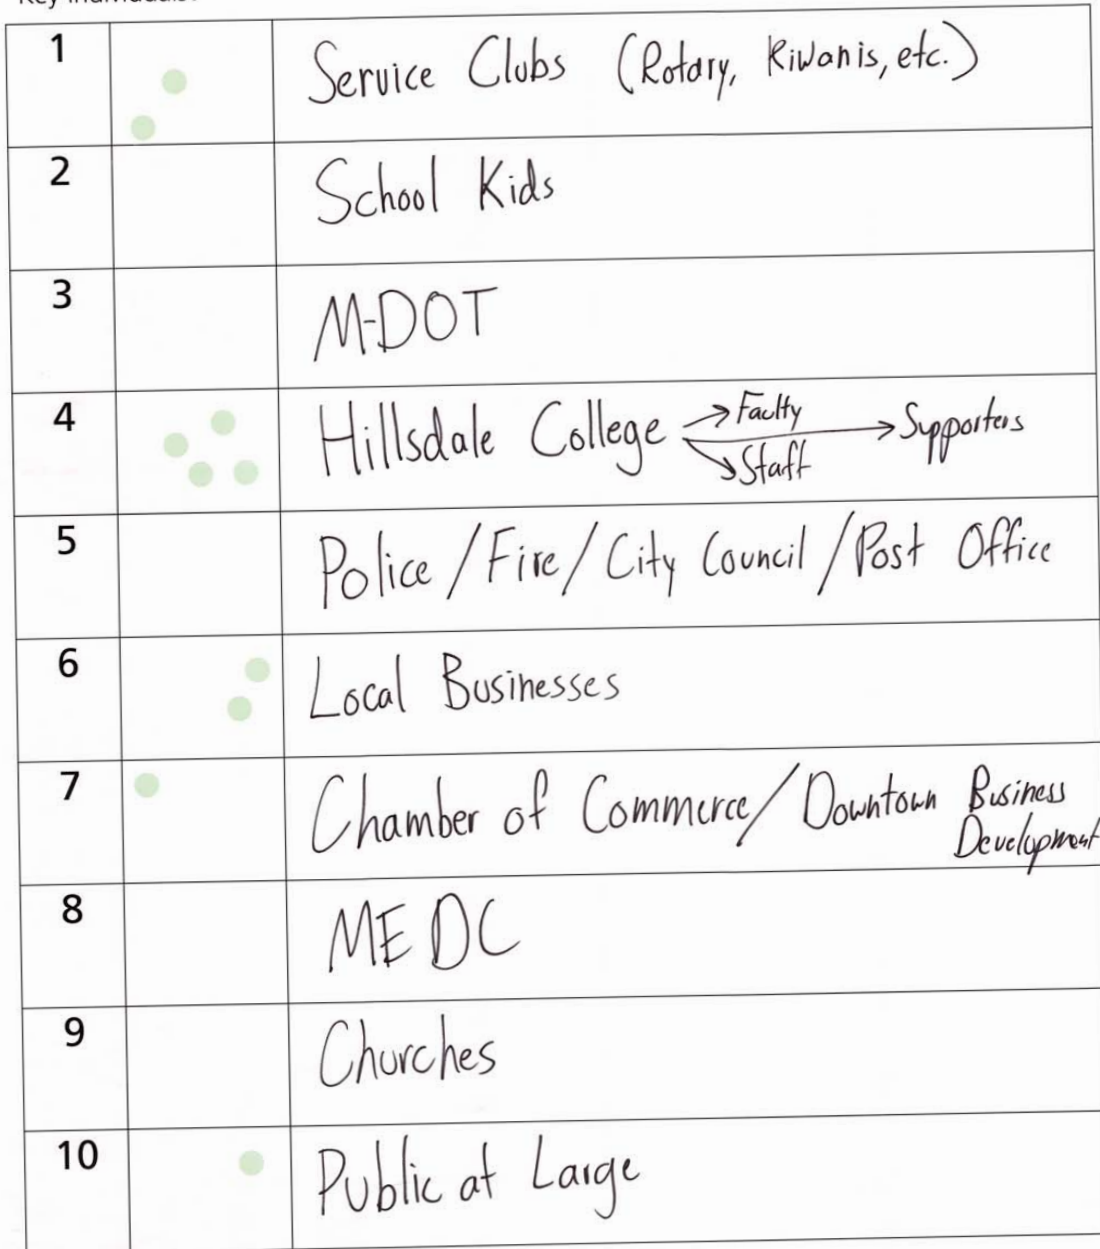 1 Service Clubs (Rotary, Kiwanis, etc.)
2 School Kids
3 M-DOT
4 Hillsdale College → Faculty → Supporters
→ Staff
5 Police / Fire / City Council / Post Office
6 Local Businesses
7 Chamber of Commerce / Downtown Business
Development
8 MEDC
9 Churches
10 Public at Large